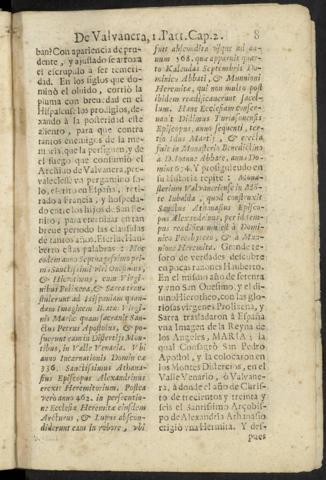 De Valvanera, 1. Part. Cap. 2. 8
ban? Con apariencia de pru-
dente, y ajustado se arroxa
el escrupulo a ser temeri-
dad. En los siglos que do-
minò el olvido, corriò la
pluma con brevedad en el
Hispalense los prodigios, de-
xando à la posteridad este
aliento, para que contra
tantos enemigos de la me-
moria, que la persiguen, y de
el fuego que consumiò el
Archivo de Valvanera, pre-
valeciesse
lo, escrito en España, reti-
rado a Francia, y hospeda-
do entre los hijos de San Be-
nito, para eternizar en tan
breve periodo las clausulas
de tantos años. Escriue Hau-
berto estas palabras: Hoc
eodem anno Septuagesimo pri-
mo Sanctissimi viri Onesimus,
& Hierotheus, cum Virgi-
nibus Polixena, & Sacra tran-
stulerunt ad Hispaniam quan-
dam Imaginem Beatæ Virgi-
nis Mariæ quam sacravit San-
ctus Petrus Apostolus, & po-
suerunt eam in Distertijs Mon-
tibus, in Valle Venaria. Vbi
anno Incarnationis Dominicæ
336. Sanctissimus Athana-
sius Episcopus Alexandrinus
erexit Heremitorium. Postea
verò anno 462. in persecutio-
ne Ecclesiæ, Heremitæ eiusdem
Arcturus, & Lupus abscon-
diderunt eam in robore, vbi
fuit abscondita usque ad an-
num 568. quo apparuit quar-
to Kalendas Septembris Do-
minico Abbati, & Munnioni
Heremitæ, qui non multo post
ibidem readificaverunt Sacel-
lum. Hanc Ecclesiam consecra-
uit Didimus Turiasonensis
Episcopus, anno sequenti, ter-
tio Idus Martij, & erecta
fuit in Monasterio Benedictino
à D. Ioanne Abbate, anno Do-
mini 674. Y prosiguiendo en
la Historia repite: Mona-
sterium Valvanerense in Mõ-
te Iubalda, quod construxit
Sanctus Athanasius Episco-
pus Alexandrinus, per id tem-
pus readificatum est à Domi-
nico Presbytero, & à Mun-
nione Heremita. Grande te-
soro de verdades descubre
en pocas razones Hauberto.
En el mismo año de setenta
y uno San Onesimo, y el di-
uino Hierotheo, con las glo-
riosas virgenes Prolisena, y
Sarra trasladaron à España
vna Imagen de la Reyna de
los Angeles, MARIA; la
qual Consagrò San Pedro
Apostol, y la colocaron en
los Montes Distercios, en el
Valle Venario, ò Valvane-
ra, à donde el año de Chris-
to de trecientos y treinta y
seis el Santissimo Arçobis-
po de Alexandria Athanasio
erigiò vna Hermita. Y des-
pues